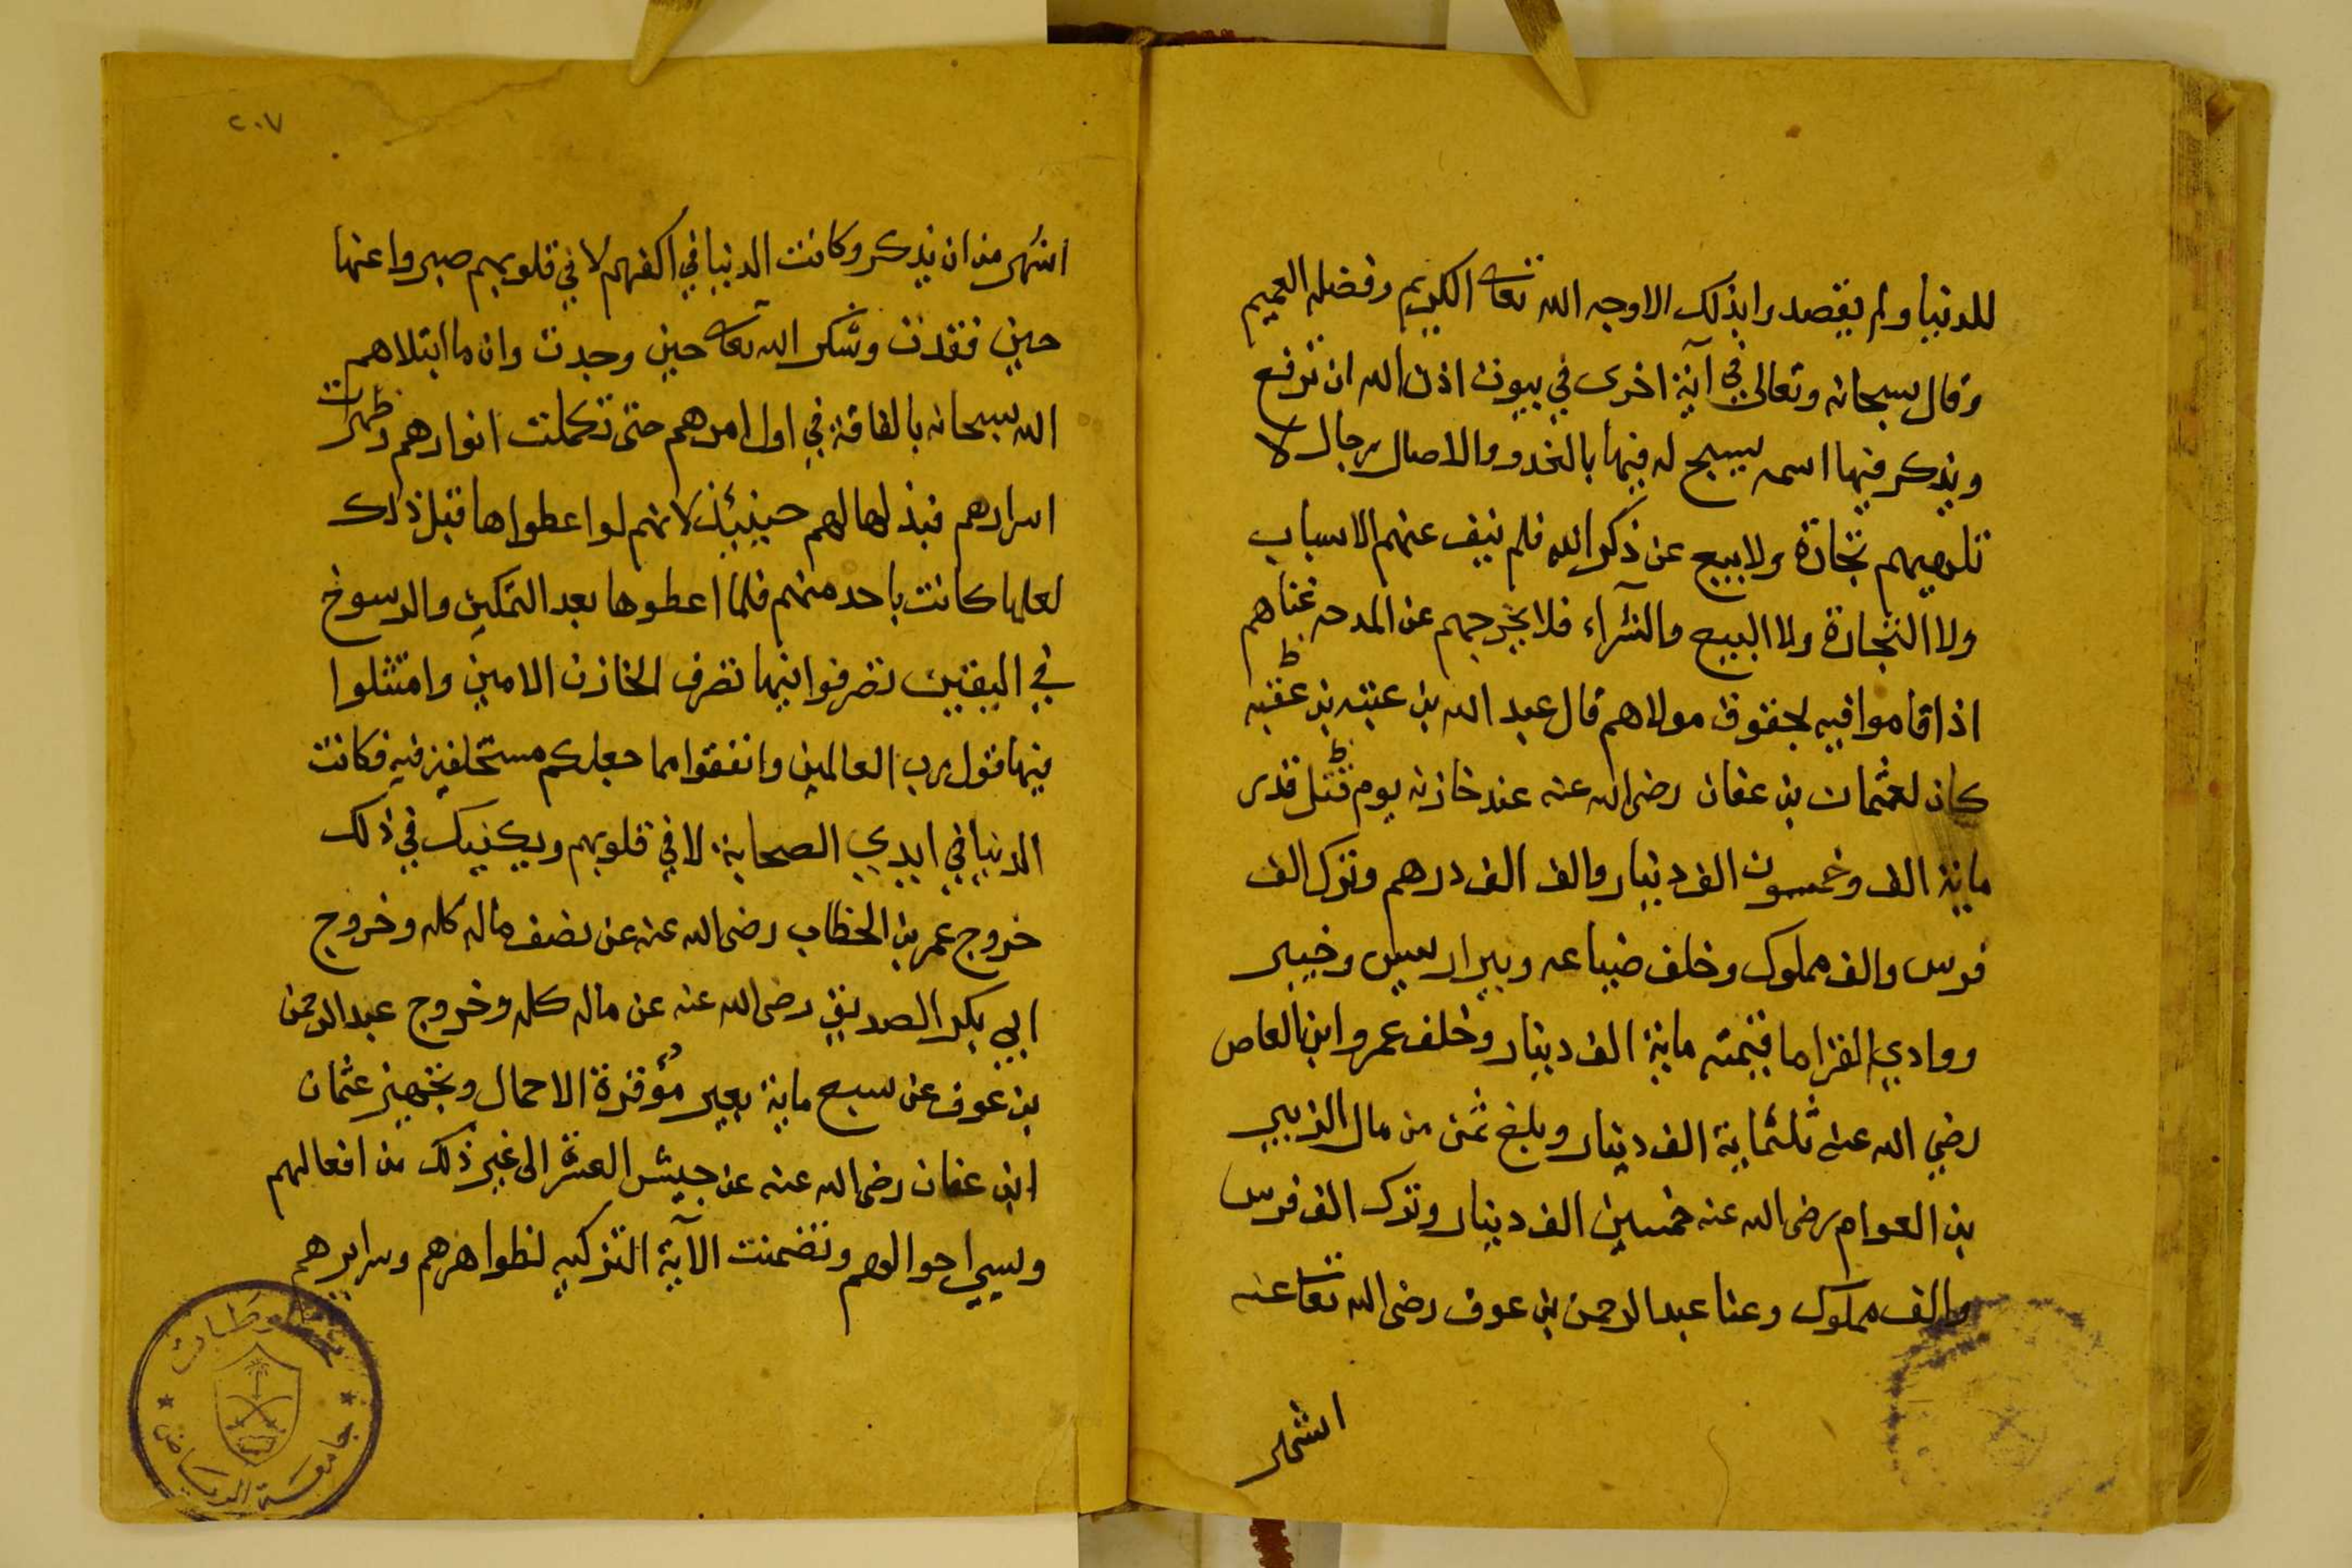 للدنيا ولم يقصدوا بذلك الا وجه الله تعا الكريم وفضله العميم
وقال سبحانه وتعالى في آية اخرى في بيوت اذن الله ان ترفع
ويذكر فيها اسمه يسبح له فيها بالغدو والاصال رجال لا
تلهيهم تجارة ولا بيع عن ذكر الله فلم ينف عنهم الاسباب
ولا التجارة ولا البيع والشرآء فلا يخرجهم عن المدحه غناهم
اذا قاموا فيه بحقوق مولاهم قال عبد الله بن عتبه بن عقبه
كان لعثمان بن عفان رضى الله عنه عند خازنه يوم قتل قدر
ماية الف وخمسون الف دينار والف الف درهم وترك الف
فرس والف مملوك وخلف ضياعه وبير اريس وخيبر
ووادي القرا ما قيمته ماية الف دينار وخلف عمرو ابن العاص
رضي الله عنه ثلثماية الف دينار وبلغ ثمن من مال الزبير
بن العوام رضى الله عنه خمسين الف دينار وترك الف فرس
والف مملوك وغنا عبد الرحمن بن عوف رضى الله تعا عنه
اشهر
٢٠٧
اشهر من ان يذكر وكانت الدنيا في اكفهم لا في قلوبهم صبروا عنها
حين فقدت وشكر الله تعا حين وجدت وان ما ابتلاهم
الله سبحانه بالفاقة في اول امرهم حتى تكملت انوارهم وظهرت
اسرارهم فبذلها لهم حينيئذ لانهم لو اعطواها قبل ذلك
لعلها كانت باحد منهم فلما اعطوها بعد التمكين والرسوخ
في اليقين تصرفوا فيها تصرف الخازن الامين وامتثلوا
فيها قول رب العالمين وانفقوا مما جعلكم مستخلفين فيه فكانت
الدنيا في ايدي الصحابة لا في قلوبهم ويكفيك في ذلك
خروج عمر بن الخطاب رضى الله عنه عن نصف ماله كله وخروج
ابي بكر الصديق رضى الله عنه عن ماله كله وخروج عبد الرحمن
بن عوف عن سبع ماية بعير موقرة الاحمال وتجهيز عثمان
ابن عفان رضى الله عنه عن جيش العسرة الى غير ذلك من افعالهم
وسير احوالهم وتضمنت الآية التزكيه لظواهرهم وسرايرهم
مخطوطات
جامعة الرياض